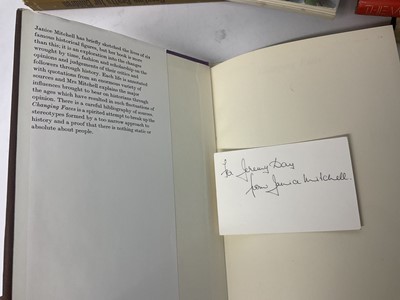 Janice Mitchell has briefly sketched the lives of six
famous historical figures, but her book is more
than this: it is an exploration into the changes
wrought by time, fashion and scholarship on the
opinions and judgements of their critics and
followers through history. Each life is annotated
with quotations from an enormous variety of
sources and Mrs Mitchell explains the major
influences brought to bear on historians through
the ages which have resulted in such fluctuations of
opinion. There is a careful bibliography of sources.
Changing Faces is a spirited attempt to break up the
stereotypes formed by a too narrow approach to
history and a proof that there is nothing static or
absolute about people.
For Jeremy Day
from Janice Mitchell.